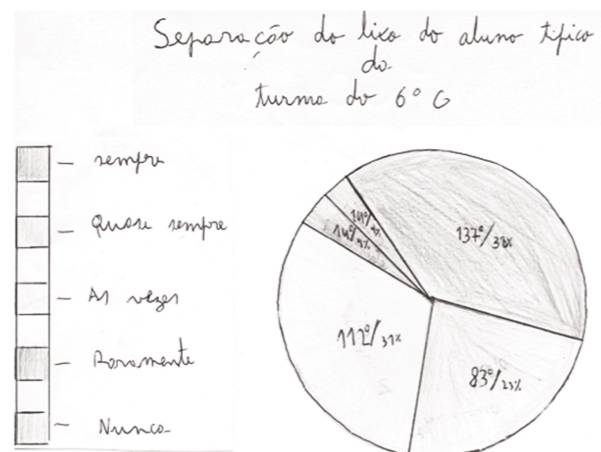 Separação do lixo do aluno tipico
da
turma do 6º G
sempre
Quase sempre
As vezes
Raramente
Nunca
137º/38%
14º/4%
14º/4%
112º/31%
83º/23%